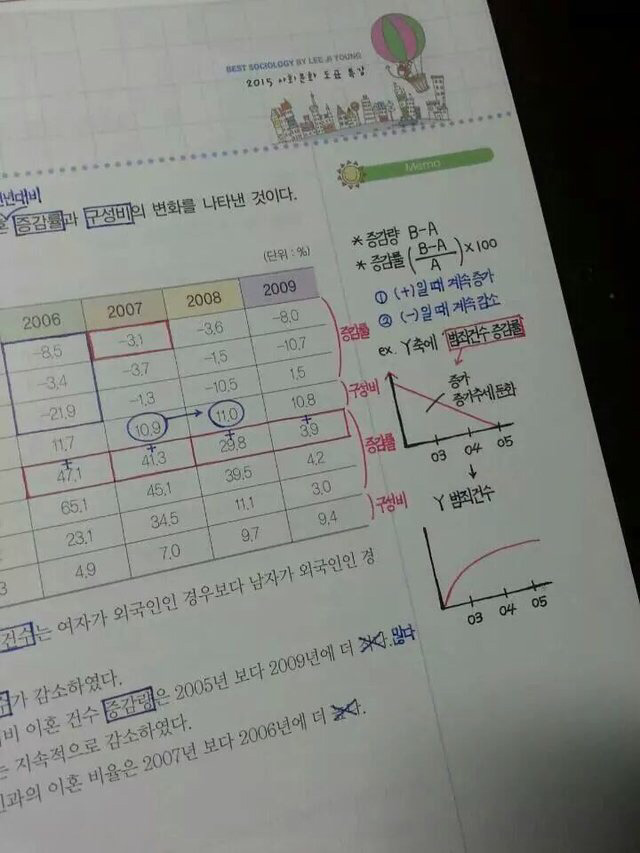 BEST SOCIOLOGY BY LEE JI YOUNG
2015 사회문화 도표 특강
전년대비
증감률과 구성비의 변화를 나타낸 것이다.
(단위 : %)
2006 2007 2008 2009
-8.5 -3.1 -3.6 -8.0
-3.4 -3.7 -1.5 -10.7
-21.9 -1.3 -10.5 1.5
11.7 10.9 → 11.0 10.8
+ + + +
47.1 41.3 29.8 3.9
65.1 45.1 39.5 4.2
23.1 34.5 11.1 3.0
4.9 7.0 9.7 9.4
증감률
구성비
증감률
구성비
건수는 여자가 외국인인 경우보다 남자가 외국인인 경
가 감소하였다.
비 이혼 건수 증감량은 2005년 보다 2009년에 더 많다
는 지속적으로 감소하였다.
인과의 이혼 비율은 2007년 보다 2006년에 더
Memo
* 증감량 B-A
* 증감률 (B-A/A)×100
① (+)일 때 계속 증가
② (-)일 때 계속 감소
ex. Y축에 범죄건수 증감률
증가
증가추세 둔화
03 04 05
↓
Y 범죄건수
03 04 05